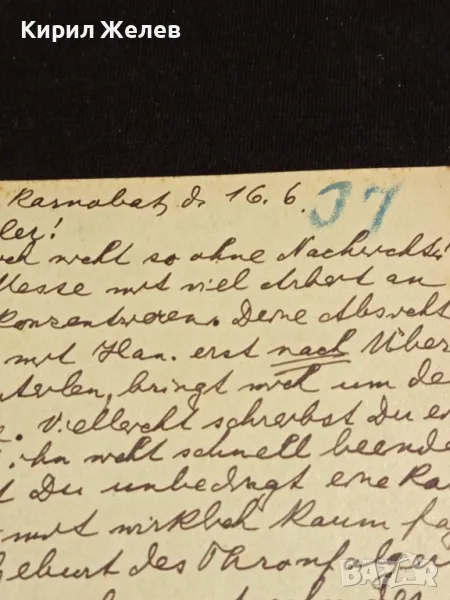 Кирил Желев
Karnobat, d. 16.6. 37
ler!
ch nicht so ohne Nachricht!
Messe mit viel Arbeit an
Konzentrieren. Deine Absicht
mit Han. erst nach Über
bringt mich um de
Vielleicht schreibst Du
ihn nicht schnell beende
t Du unbedingt eine Ka
mir wirklich kaum
Geburt des Thronfolger
des
bazar